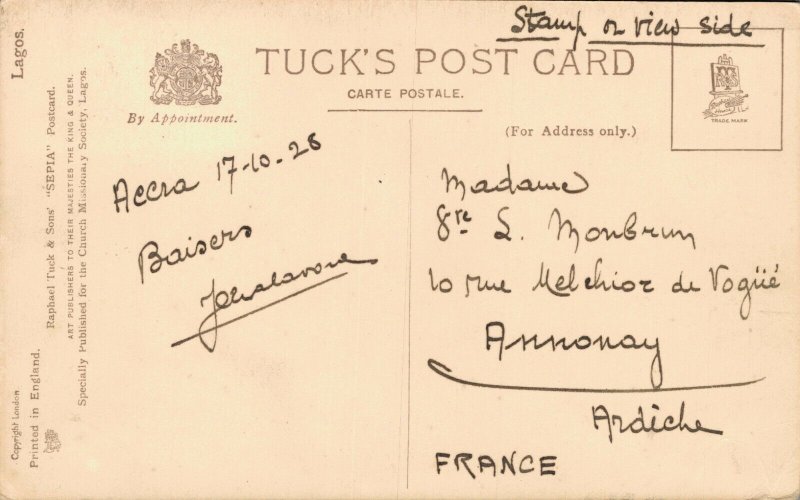 Stamp on view side
TUCK'S POST CARD
CARTE POSTALE.
By Appointment.
(For Address only.)
TRADE MARK
Accra 17-10-28
Baisers
Madame
L. Monbrun
10 rue Melchior de Vogüé
Annonay
Ardèche
FRANCE
Lagos.
Raphael Tuck & Sons' "SEPIA" Postcard.
ART PUBLISHERS TO THEIR MAJESTIES THE KING & QUEEN.
Specially Published for the Church Missionary Society, Lagos.
Copyright London
Printed in England.